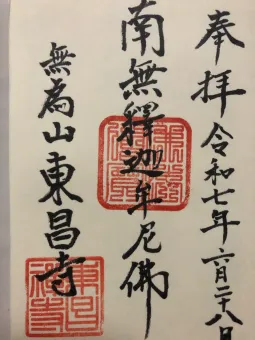 奉拝令和七年六月二十八日
南無釋迦牟尼佛
無為山東昌寺